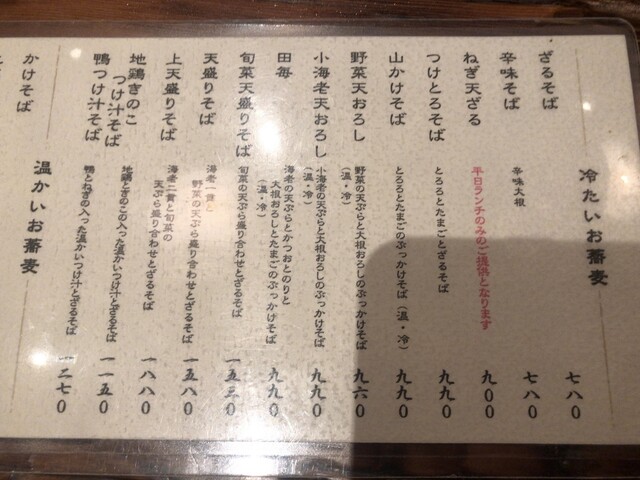 冷たいお蕎麦
ざるそば
七八〇
辛味そば
辛味大根
七八〇
ねぎ天ざる
平日ランチのみのご提供となります
九〇〇
つけとろそば
とろろとたまごとざるそば
九九〇
山かけそば
とろろとたまごのぶっかけそば(温・冷)
九九〇
野菜天おろし
野菜の天ぷらと大根おろしのぶっかけそば
(温・冷)
九六〇
小海老天おろし
小海老の天ぷらと大根おろしのぶっかけそば
(温・冷)
九九〇
田毎
海老の天ぷらとかつおとのりと
大根おろしとたまごのぶっかけそば
(温・冷)
九九〇
旬菜天盛りそば
旬菜の天ぷら盛り合わせとざるそば
一五三〇
天盛りそば
海老一貫と
野菜の天ぷら盛り合わせとざるそば
一五八〇
上天盛りそば
海老二貫と旬菜の
天ぷら盛り合わせとざるそば
一八八〇
地鶏きのこ
つけ汁そば
地鶏ときのこの入った温かいつけ汁とざるそば
一一五〇
鴨つけ汁そば
鴨とねぎの入った温かいつけ汁とざるそば
一二七〇
温かいお蕎麦
かけそば